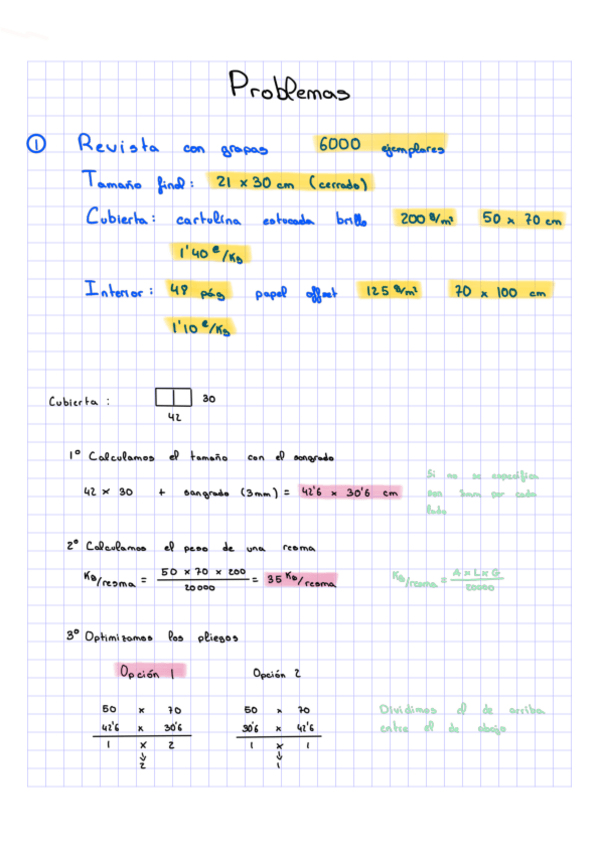 Problemas
① Revista con grapas 6000 ejemplares
Tamaño final: 21 x 30 cm (cerrado)
Cubierta: cartulina estucada brillo 200 g/m² 50 x 70 cm
1'40 €/Kg
Interior: 48 pág papel offset 125 g/m² 70 x 100 cm
1'10 €/Kg
Cubierta: 30
42
1º Calculamos el tamaño con el sangrado
Si no se especifica
42 x 30 + sangrado (3mm) = 42'6 x 30'6 cm
son 3mm por cada
lado
2º Calculamos el peso de una resma
Kg/resma = 50 x 70 x 200 / 20000 = 35 Kg/resma
Kg/resma = A x L x G / 20000
3º Optimizamos los pliegos
Opción 1 Opción 2
50 x 70 50 x 70
42'6 x 30'6 30'6 x 42'6
1 x 2 1 x 1
↓ ↓
2 1
Dividimos el de arriba
entre el de abajo